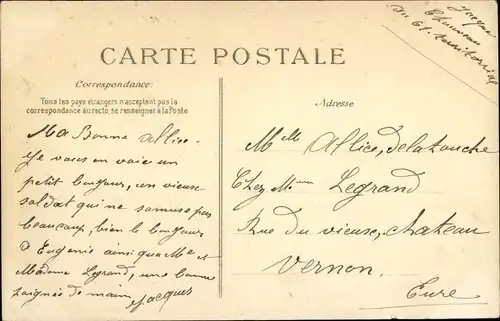 Jacque
Chauveau
au 61. territorial
CARTE POSTALE
Correspondance:
Tous les pays étrangers n'acceptent pas la
correspondance au recto, se renseigner à la Poste
Adresse
Ma Bonne Allice.
Je vous en vaie un
petit bonjour, un vieuse
soldat qui ne samuse pas
beaucoup, bien le bonjour
d Eugenie ainsi que Mr et
Madame Legrand, une bonne
poignée de main, Jacques
Melle Allice, delatouche
Chez Mme Legrand
Rue du vieuse, chateau
Vernon.
Eure